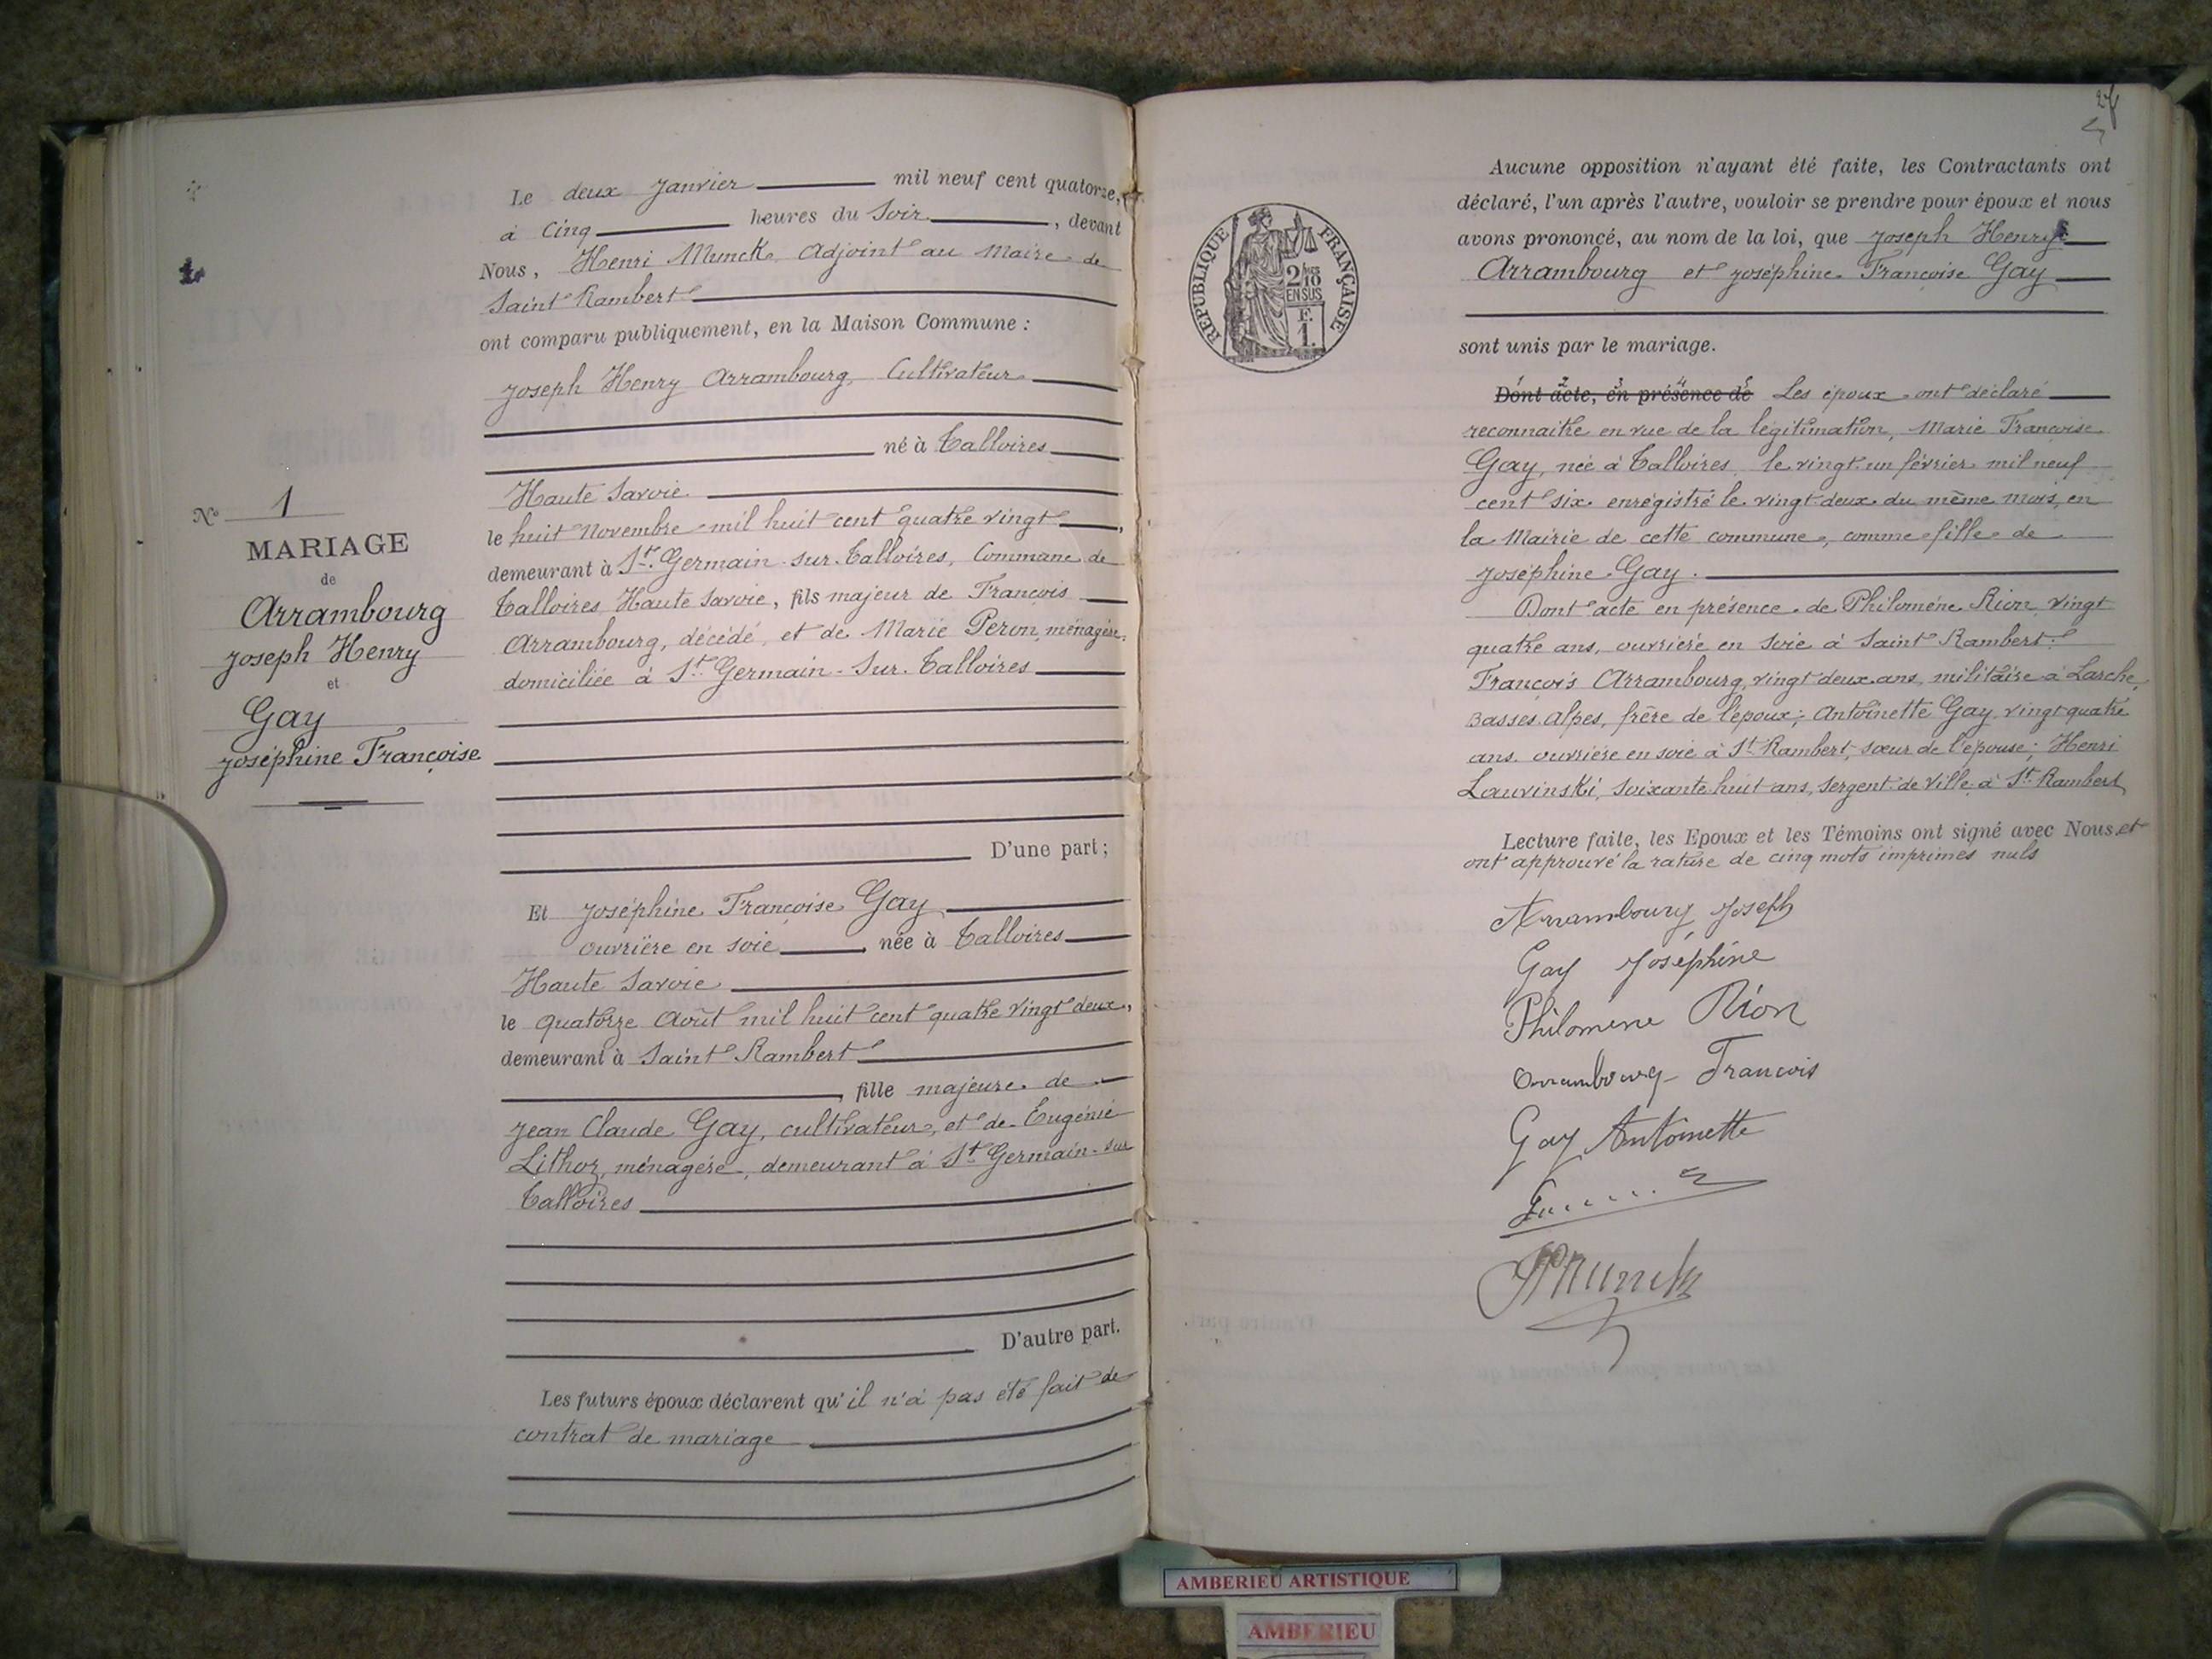 Le deux Janvier mil neuf cent quatorze,
à Cinq heures du Soir, devant
Nous, Henri Munck Adjoint au Maire de
Saint Rambert
ont comparu publiquement, en la Maison Commune :
Joseph Henry Arrambourg, Cultivateur
né à Talloires
Haute Savoie
le huit Novembre mil huit cent quatre vingt,
demeurant à St. Germain sur Talloires, Commune de
Talloires Haute Savoie, fils majeur de François
Arrambourg, décédé, et de Marie Peron, ménagère,
domiciliée à St Germain-Sur-Talloires
D'une part ;
N° 1
MARIAGE
de
Arrambourg
Joseph Henry
et
Gay
Joséphine Françoise
Et Joséphine Françoise Gay
ouvrière en soie, née à Talloires
Haute Savoie
le quatorze Août mil huit cent quatre vingt deux,
demeurant à Saint Rambert
, fille majeure de
Jean Claude Gay, cultivateur, et de Eugénie
Lithoz, ménagère, demeurant à St Germain-sur
Talloires
D'autre part.
Les futurs époux déclarent qu'il n'a pas été fait de
contrat de mariage
REPUBLIQUE FRANÇAISE
2/10
EN SUS
F.
1.
Aucune opposition n'ayant été faite, les Contractants ont
déclaré, l'un après l'autre, vouloir se prendre pour époux et nous
avons prononcé, au nom de la loi, que Joseph Henry
Arrambourg et Joséphine Françoise Gay
sont unis par le mariage.
Dont acte, en présence de Les époux ont déclaré
reconnaitre en vue de la légitimation, Marie Françoise
Gay, née à Talloires le vingt-un février mil neuf
cent six enregistré le vingt-deux du même mois, en
la Mairie de cette commune, comme fille de
Joséphine Gay.
Dont acte en présence de Philomène Rion vingt
quatre ans, ouvrière en soie à Saint Rambert
François Arrambourg, vingt deux ans, militaire à Larche,
Basses Alpes, frère de l'époux ; Antoinette Gay vingt-quatre
ans ouvrière en soie à St Rambert, sœur de l'épouse ; Henri
Lauvinski, soixante huit ans, sergent de Ville à St Rambert
Lecture faite, les Epoux et les Témoins ont signé avec Nous et
ont approuvé la rature de cinq mots imprimés nuls
Arrambourg Joseph
Gay Joséphine
Philomène Rion
Arrambourg François
Gay Antoinette
HMunck
AMBERIEU ARTISTIQUE
AMBERIEU